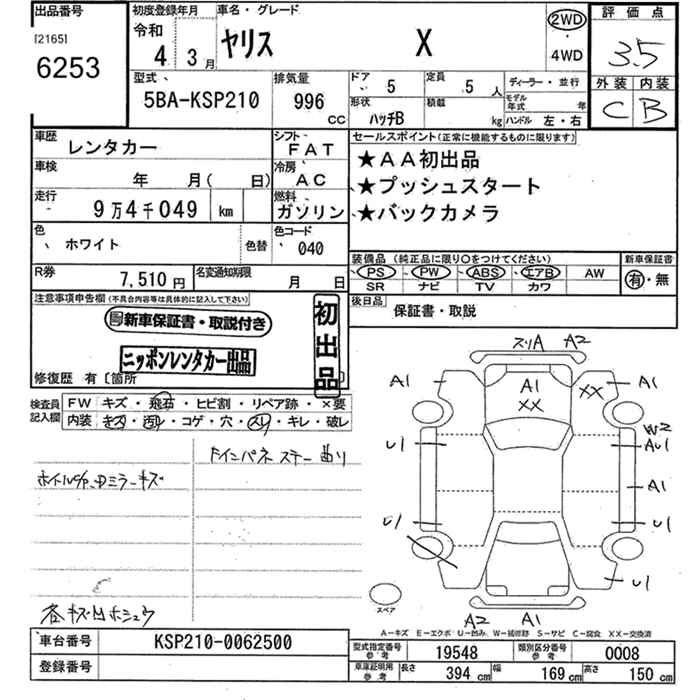 出品番号 初度登録年月 車名・グレード 評価点
[2165] 令和 ヤリス X 2WD・4WD 3.5
6253 4 3月
型式 排気量 ドア 5 定員 5人 ディーラー・並行 外装 内装
5BA-KSP210 996cc 形状 ハッチB 積載 kg モデル年式 年 ハンドル 左・右 C B
車歴 レンタカー シフト FAT セールスポイント(正常に機能するものに限ります)
車検 年 月( 日) 冷房 AC ★AA初出品
走行 9万4千049 km 燃料 ガソリン ★プッシュスタート
★バックカメラ
色 ホワイト 色替 色コード 040
装備品(純正品に限り○をつけてください) 新車保証書
R券 7,510円 名変通知期限 月 日 PS・PW・ABS・エアB・AW 有・無
SR ナビ TV カワ
注意事項申告欄(不具合内容等は具体的に記入して下さい) 後日品 保証書・取説
新車保証書・取説付き
初出品
ニッポンレンタカー出品
修復歴 有〔箇所 〕
検査員記入欄 FW キズ・飛石・ヒビ割・リペア跡・×要
内装 キズ・汚れ・コゲ・穴・スリ・キレ・破レ
スリA A2
A1 A1 XX XX A1
U1 W2 AU1
A1
U1 U1
U1
A2 A1
スペア
A-キズ E-エクボ U-凹み W-補修跡 S-サビ C-腐食 XX-交換済
車台番号 KSP210-0062500 型式指定番号 参考 19548 類別区分番号 参考 0008
登録番号 車庫証明用 参考 長さ 394cm 幅 169cm 高さ 150cm